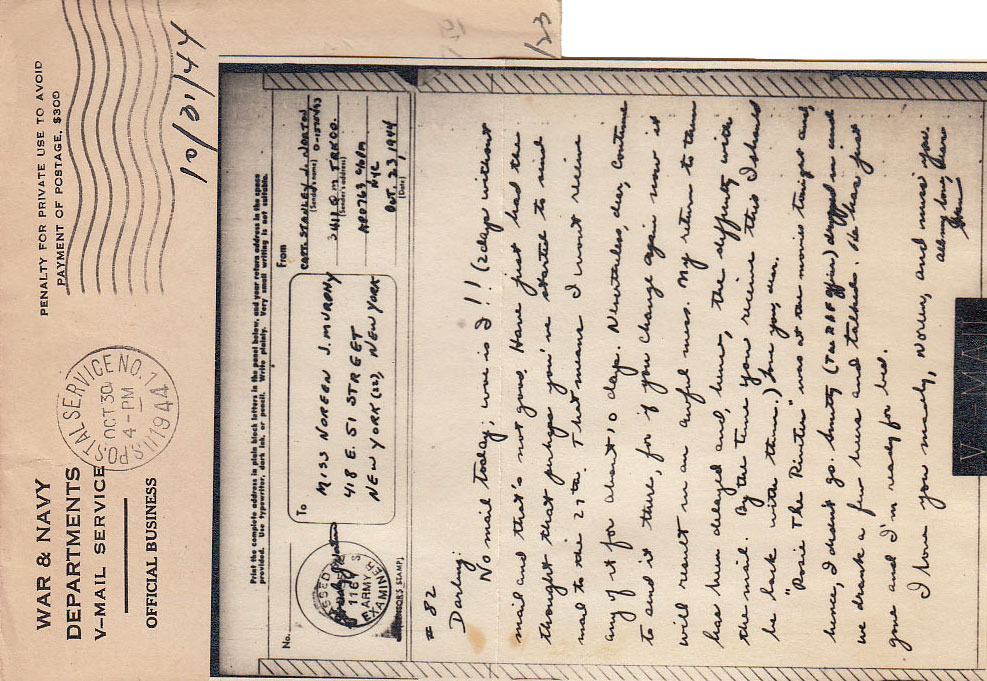 WAR & NAVY
DEPARTMENTS
V-MAIL SERVICE
OFFICIAL BUSINESS
U.S. POSTAL SERVICE NO. 1
OCT 30
4-PM
1944
PENALTY FOR PRIVATE USE TO AVOID
PAYMENT OF POSTAGE, $300
10/31/44
123
Print the complete address in plain block letters in the panel below, and your return address in the space
provided. Use typewriter, dark ink, or pencil. Write plainly. Very small writing is not suitable.
No.
PASSED BY
U 1167 S
ARMY
EXAMINER
(CENSOR'S STAMP)
To
MISS NOREN J. MURPHY
418 E. 51 STREET
NEW YORK (22), NEW YORK
From
CAPT. STANLEY J. NORTON
(Sender's name)
3412 Q M TRK CO.
(Sender's address)
APO 763 % PM
NYC
OCT. 23, 1944
(Date)
# 82
Darling:
No mail today; woe is I!! (2 days without
mail and that's not good. Have just had the
thought that perhaps you've started to send
mail to the 27th. That means I won't receive
any of it for about 10 days. Nevertheless, dear, continue
to send it there, for if you change again now it
will result in an awful mess. My return to them
has been delayed and, hence, the difficulty with
the mail. By the time you receive this I should
be back with them.) You see.
"Rosie The Riveter" was at the movies tonight and,
hence, I didn't go. Smitty (The RAF officer) dropped in and
we drank a few beers and talked. He has just
gone and I'm ready for bed.
I love you madly, Noreen, and miss you.
All my love, dear
Stan
V-MAIL